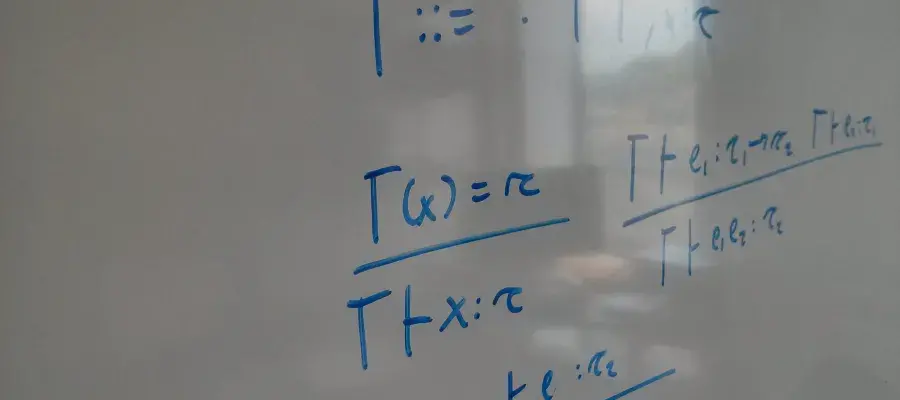 Γ ::= · | Γ, τ
Γ(x) = τ
Γ ⊢ x : τ
Γ ⊢ e₁ : τ₁ → τ₂ Γ ⊢ e₂ : τ₁
Γ ⊢ e₁ e₂ : τ₂
⊢ e : τ₂